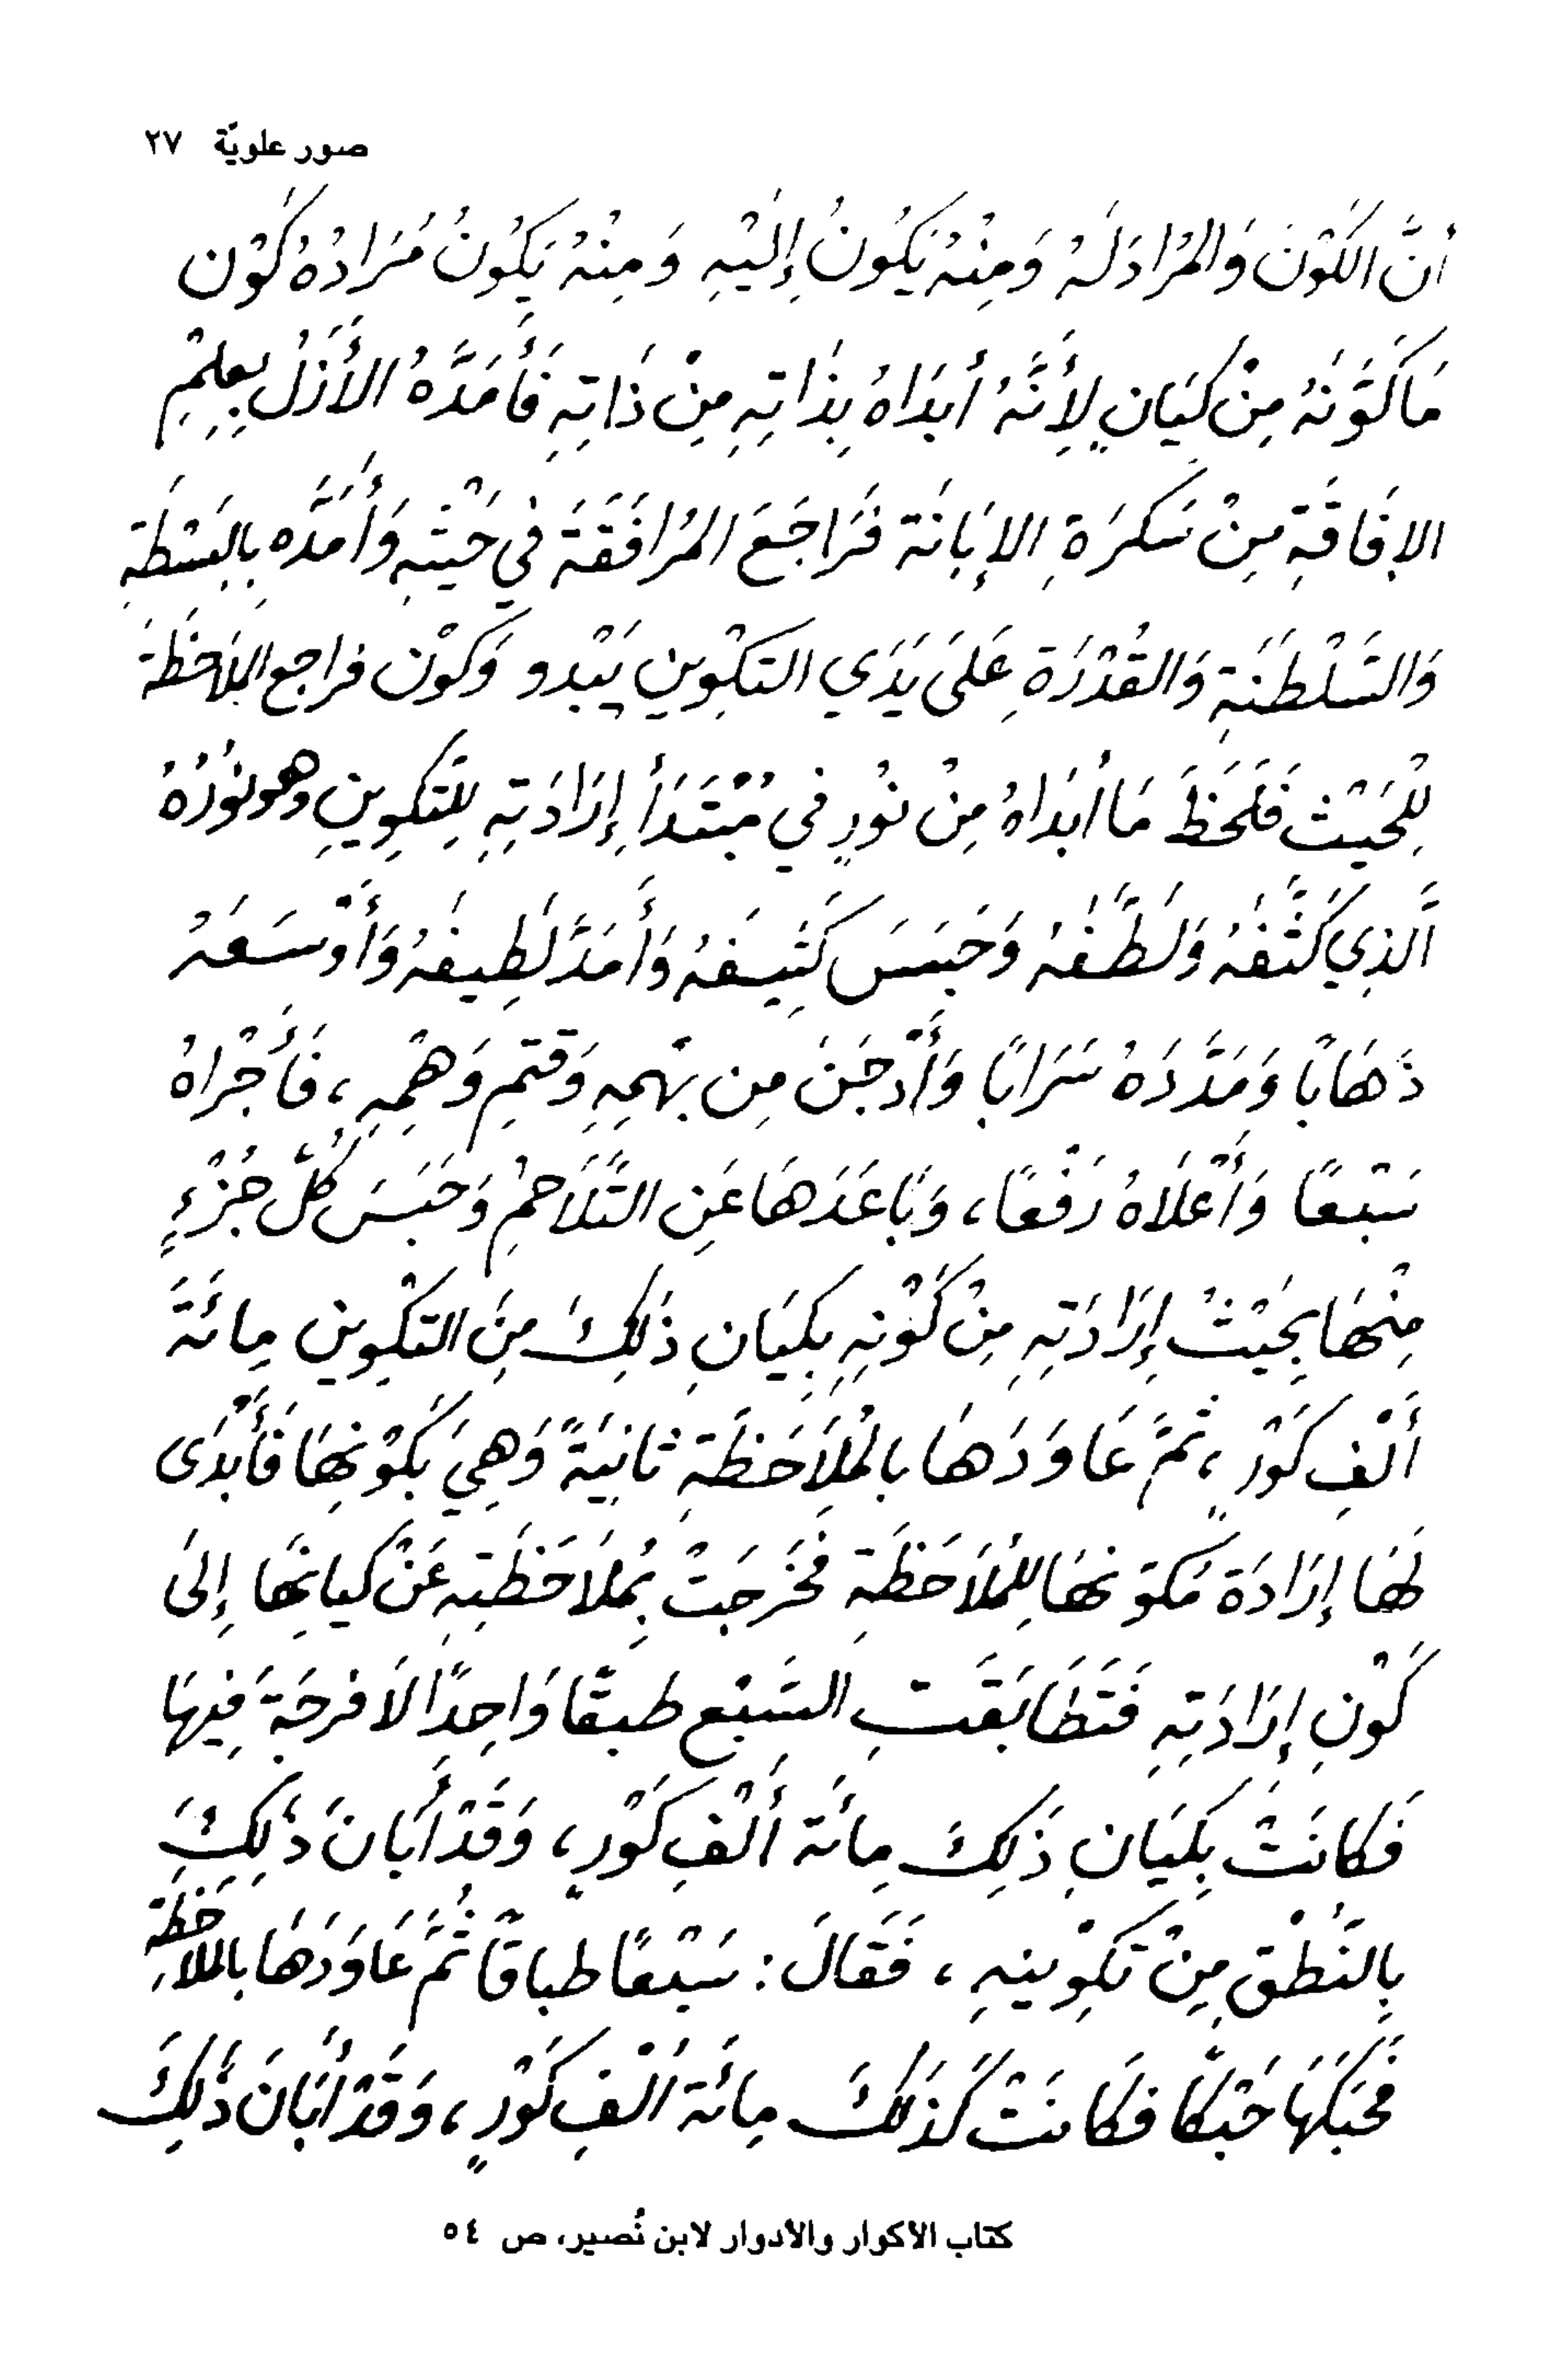 صور علويّة ٢٧
أنَّ الكَوْنَ وَالمُرَادَ لَهُ وَمِنْهُ يَكُونُ إِلَيْهِ وَمِنْهُ يَكُونُ مُرَادُهُ كَوْن
مَا كَوَّنَهُ مِنْ كِيَانٍ لِأَنَّهُ أبدَاهُ بِذَاتِهِ مِنْ ذَاتِهِ فَأَمَدَّهُ الأَزَلُ بِعِلِمْ
الإفَاقَةِ مِنْ سَكرَةِ الإبَانَة فَرَاجَعَ المُرَافَقَةَ فِي حَيْثِهِ وَأَمَدَّه بِالبَسْطَةِ
وَالسَّلْطَنَةِ وَالقُدْرَةِ عَلَى يَدَي التَكْوِينِ يَبْدو وَكَوْن فراجع الملاَحَظَةَ
لِلْحَيْث فَلَحَظَ مَا أبدَاهُ مِنْ نُورٍ في مُبْتَدَأ إِرَادَتِهِ لِلتَّكوِينِ وهو نُورُهُ
الَّذِي كَثَّفَهُ وَلَطَّفَهُ وَحَبَسَ كَثِيفَهُ وَأَمَدَّ لَطِيفَهُ وَأَوْسَعَهُ
ذَهَابًا وَمَدَّدَهُ سَرَابًا وَأَدْجَنَ مِن بَهْمِهِ وَقتمِ وَهْمِهِ، فَأَجْرَاهُ
سَبْعًا وَأَعْلَاهُ رَفْعًا، وَبَاعَدَهَا عَنِ التَّلَاحمُ وَحَبَسَ كُلّ جُزْءٍ
مِنْهَا بِحَيْثُ إِرَادَتِهِ مِنْ كَوْنِهِ بِكِيَانِ ذَلِكَ مِنَ التكْوِين مِائَةَ
أَلْفِ كَوْرٍ، ثُمَّ عَاوَدَهَا بالمُلَاحَظَةِ ثَانِيَةً وَهِيَ بِكَوْنِهَا فَأَبْدَى
لَهَا إِرَادَة مُكَوّنهَا لِلمُلَاحَظَةِ فَخَرَجَتْ بِمُلاَحَظَتِهِ عَنْ كيانِهَا إِلىَ
كَوْنِ إِرَادَتِهِ فَتَطَابَقَتِ السَّبْع طبقًا وَاحِدًا لاَ فرجَةَ فِيهَا
فَكانَتْ بِكِيَانِ ذَلِكَ مِائَة أَلْفِ كَوْرٍ، وَقَدْ أَبَانَ ذَلِكَ
بِالنُطْقِ مِنْ تَكوِينِهِ، فَقَالَ: سَبْعًا طباقًا ثُمَّ عَاوَدَهَا بالملاحَظَة
فَحَبَكَهَا حَبْكًا فكَانَتْ كَذَلكَ مِائَة أَلْفِ كَوْرٍ، وَقَدْ أَبَانَ ذَلِكَ
كتاب الأكوار والأدوار لابن نُصير، ص ٥٤